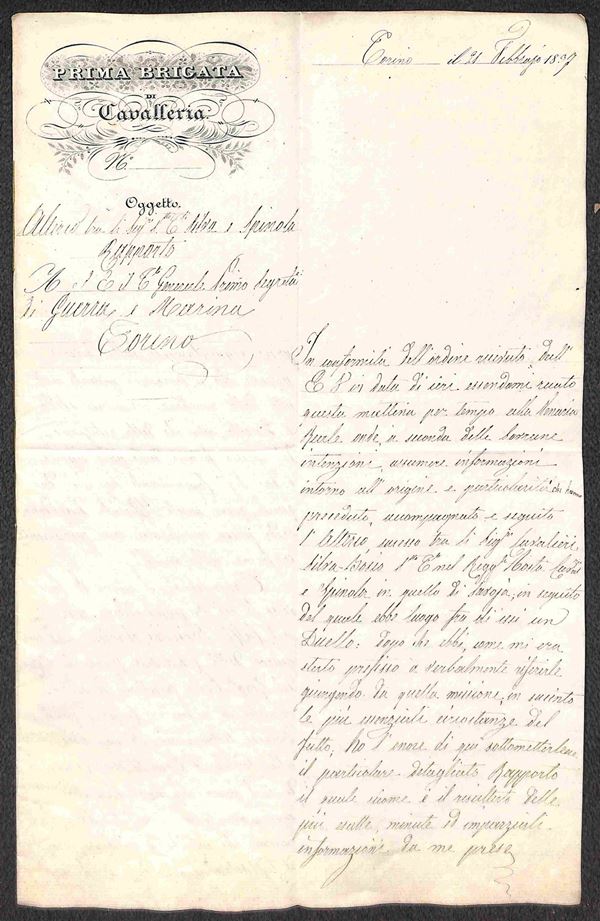 PRIMA BRIGATA
DI
Cavalleria
N.
Torino il 21 Febbrajo 1837
Oggetto.
Alterco tra li Sig.ri Silva e Spinola
Rapporto
A S E Il Primo Segret.
di Guerra e Marina
Torino
In conformità dell'ordine ricevuto dall'
E V in data di ieri essendomi recato
questa mattina per tempo alla Venaria
Reale onde, a seconda delle
intenzioni, assumere informazioni
intorno all'origine e particolarità che hanno
preceduto, accompagnato e seguito
l'Alterco successo tra li Sig.ri Cavalieri
Silva nel Regg.
e Spinola in quello di Savoja, in seguito
del quale ebbe luogo fra di essi un
Duello: dopo che ebbi, come mi era
stato prefisso a verbalmente riferirle
giungendo da quella missione, in succinto
le più essenziali circostanze del
fatto, ho l'onore di qui sottometterlene
il particolare detagliato Rapporto
il quale siccome è il risultato delle
più esatte, minute ed imparziali
informazioni da me prese